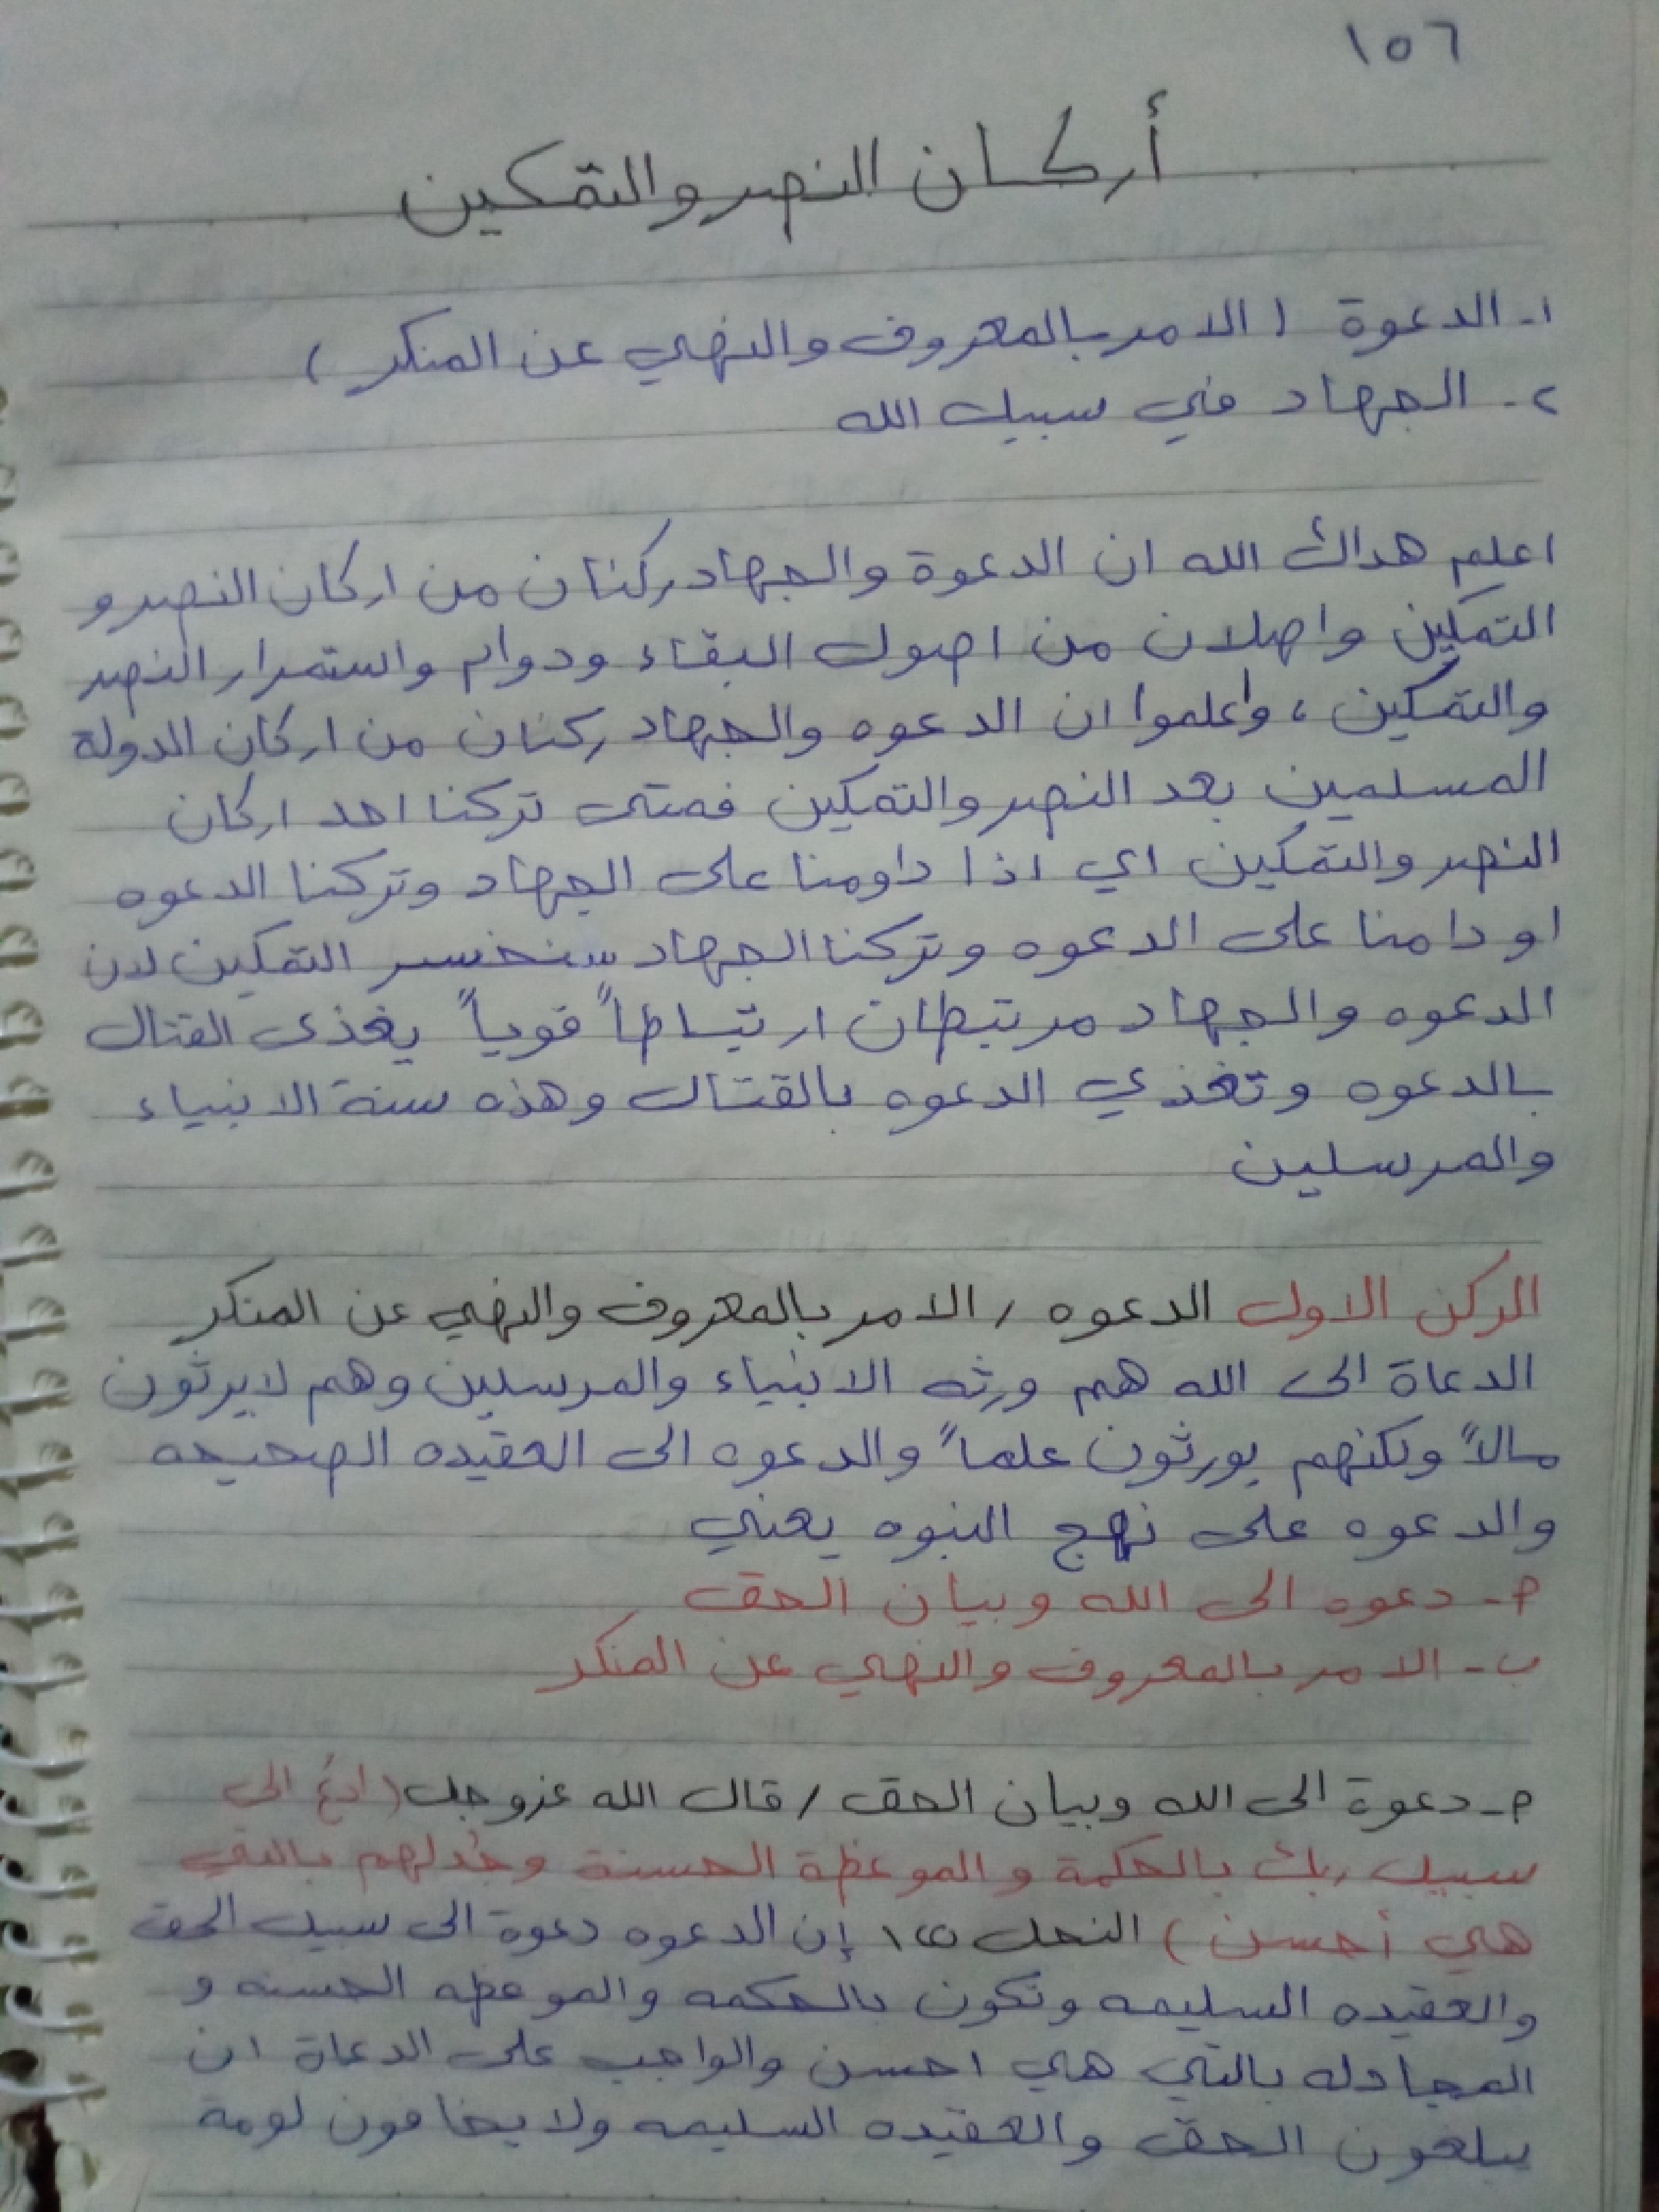 ١٥٦
أركان النصر والتمكين
١- الدعوة (الامر بالمعروف والنهي عن المنكر)
٢- الجهاد في سبيل الله
اعلم هداك الله ان الدعوة والجهاد ركنان من اركان النصر و
التمكين واصلان من اصول البقاء ودوام واستمرار النصر
والتمكين ، واعلموا ان الدعوه والجهاد ركنان من اركان الدولة
المسلمين بعد النصر والتمكين فمتى تركنا احد اركان
النصر والتمكين اي اذا داومنا على الجهاد وتركنا الدعوه
او دامنا على الدعوه وتركنا الجهاد سنخسر التمكين لان
الدعوه والجهاد مرتبطان ارتباطاً قوياً يغذى القتال
بالدعوه وتغذي الدعوه بالقتال وهذه سنة الانبياء
والمرسلين
الركن الاول الدعوه / الامر بالمعروف والنهي عن المنكر
الدعاة الى الله هم ورثه الانبياء والمرسلين وهم لايرثون
مالاً ولكنهم يورثون علماً والدعوه الى العقيده الصحيحه
والدعوه على نهج النبوه يعني
أ- دعوه الى الله وبيان الحق
ب- الامر بالمعروف والنهي عن المنكر
أ- دعوة الى الله وبيان الحق / قال الله عزوجل (ادعُ الى
سبيل ربك بالحكمة والموعظة الحسنة وجٰدلهم بالتي
هي أحسن) النحل ١٢٥ إن الدعوه دعوة الى سبيل الحق
والعقيده السليمه وتكون بالحكمه والموعظه الحسنه و
المجادله بالتي هي احسن والواجب على الدعاة ان
يبلغون الحق والعقيده السليمه ولا يخافون لومة